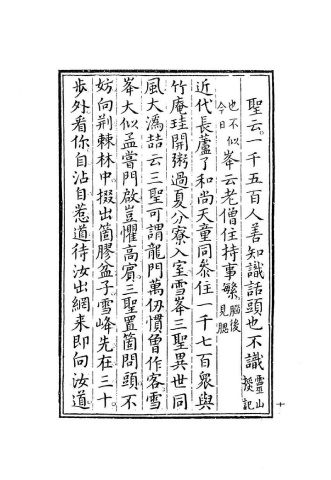 聖云一千五百人善知識話頭也不識靈山授記
也不似今日峯云老僧住持事繁腦後見腮
近代長蘆了和尚天童同叅住一千七百衆與
竹庵珪開粥過夏分寮入室雪峯三聖異世同
風大潙喆云三聖可謂龍門萬仭慣曽作客雪
峯大似孟嘗門啟豈懼高賓三聖置箇問頭不
妨向荆棘林中掇出箇膠盆子雪峰先在三十
步外看你自沾自惹道待汝出網来即向汝道
十